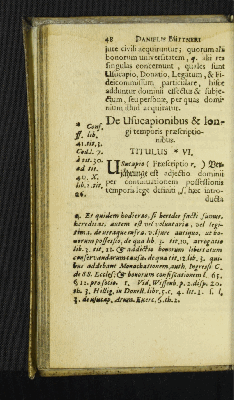 48 DANIELIS BÜTTNERI
jure civili acquiruntur; quorum alia
bonorum universitatem, q. alii res
singulas concernunt, quales sunt
Usucapio, Donatio, Legatum, & Fi-
deicommissum particulare, hisce
adduntur dominii effectus & subje-
ctum, seu personæ, per quas domi-
nium illud acquiratur.
De Usucapionibus & lon-
gi temporis præscriptio-
nibus.
TITULUS VI.
Usucapio (Præscriptio r.) Ver-
est adjectio dominii
per continuationem possessionis
tempora lege definiti, hæc intro-
ducta
* Conf.
ff. lib.
41. tit. 3.
Cod. l. 7.
à tit. 30.
ad tit.
40. X.
lib. 2. tit.
26.
q. Et quidem hodie ros. si heredes facti sumus,
hereditas, autem est vel voluntaria, vel legi-
tima, de utraque infra. v. si jure antiquo, ut bo-
norum possessio, de qua lib. 3. tit. 10, arrogatio
lib. 3. tit. 11. & addictio bonorum libertatum
conservandarum causa. de qua tit. 12. lib. 3. qui-
bus addebant Monachationem, auth. Ingressi C.
de SS. Eccles: & bonorum confiscationem l.
§ 12. pro socio. r. Vid. Wissenb. p. 2. disp. 20.
th. 3. Hillig. in Donell. lib. 5. c. 4. lit. l. s. l.
3. de usucap.